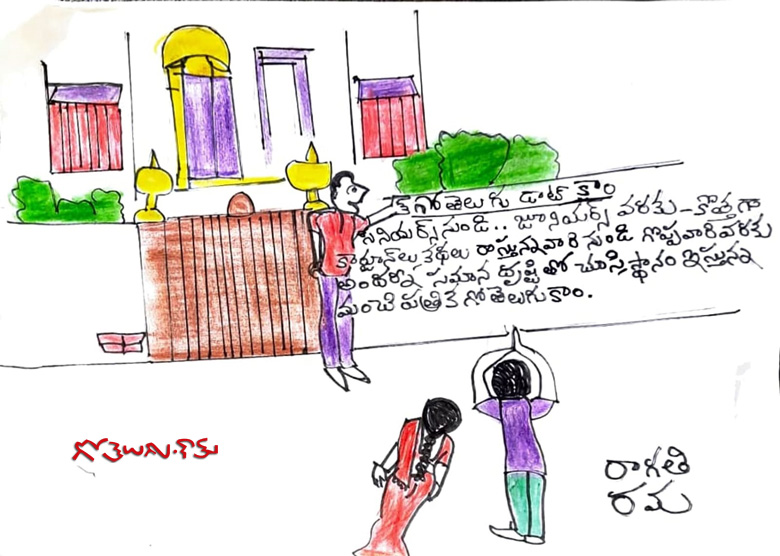 గోతెలుగు డాట్ కాం
సీనియర్స్ నుండి.. జూనియర్స్ వరకు - కొత్తగా
కార్టూన్‌లు, కథలు రాస్తున్నవారి నుండి గొప్పవారి వరకు
అందరిని సమాన దృష్టి తో చూస్తి స్థానం ఇస్తున్న
మంచి పత్రిక గో తెలుగు కాం.
గోతెలుగు.కామ్
రాగతి
రమ